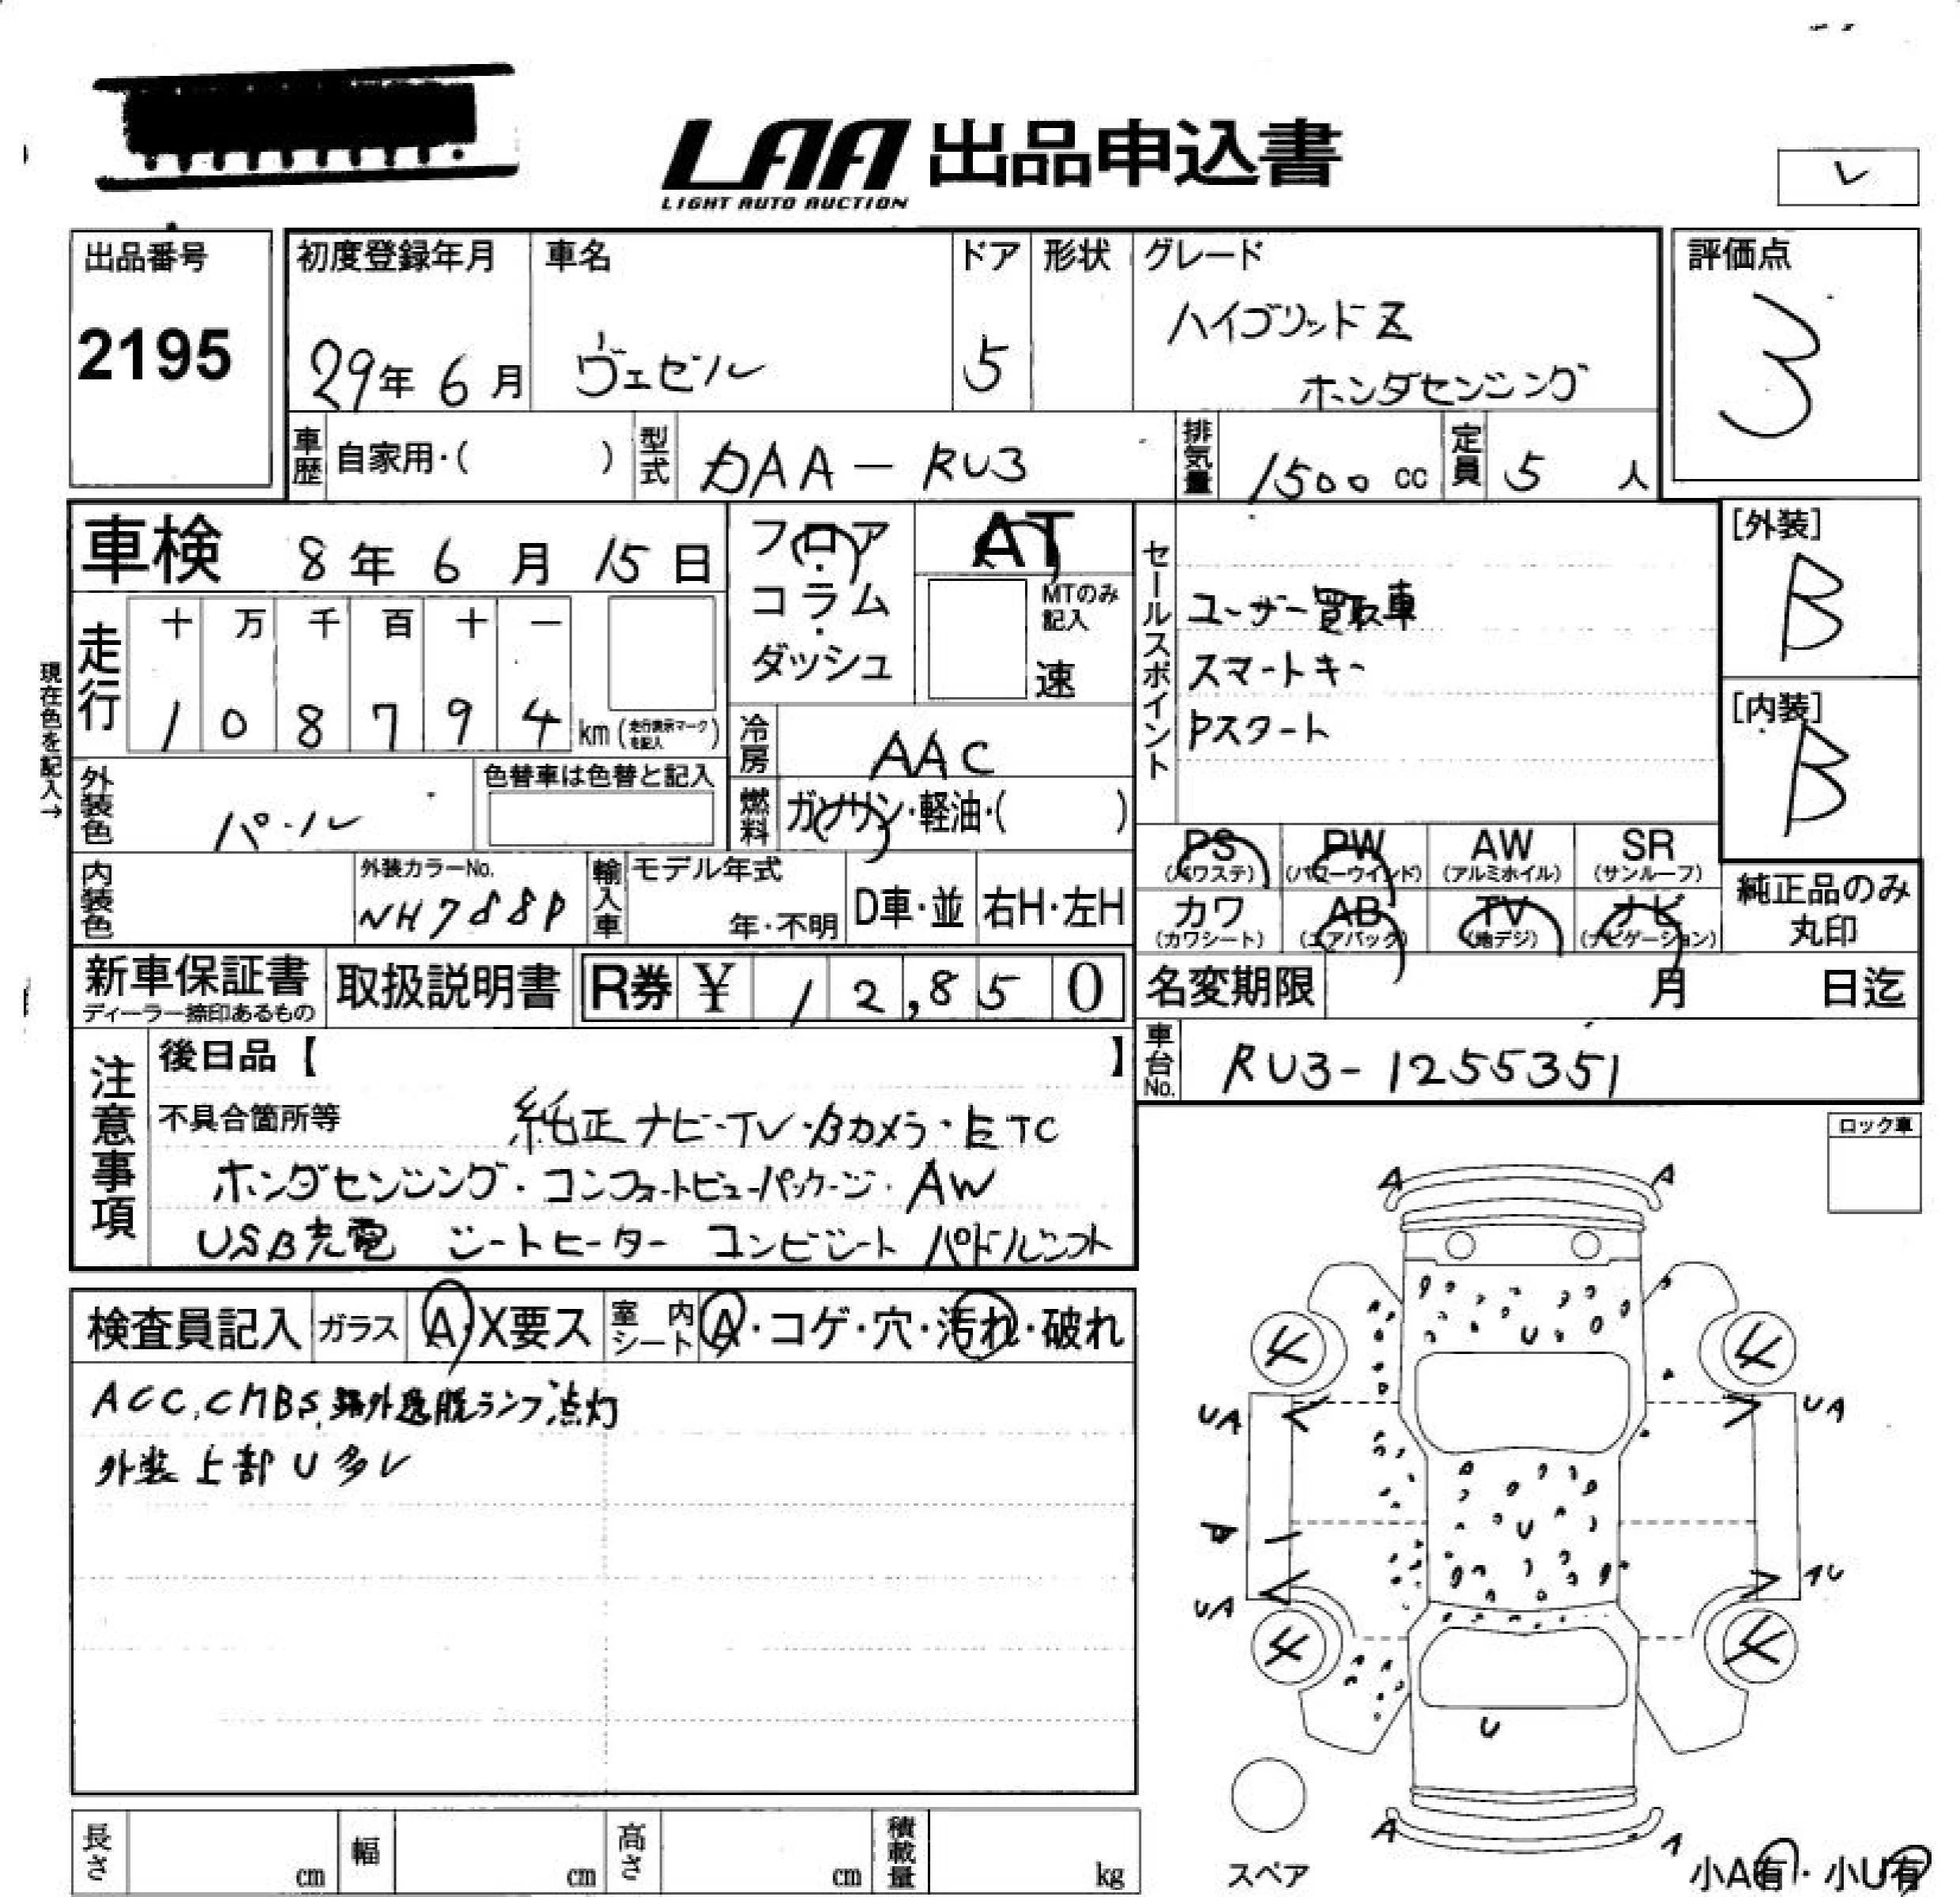 LAA 出品申込書
LIGHT AUTO AUCTION
レ
出品番号
2195
初度登録年月
29年 6月
車名
ヴェゼル
ドア
5
形状
グレード
ハイブリッドZ
ホンダセンシング
評価点
3
車歴
自家用・( )
型式
DAA-RU3
排気量
1500 cc
定員
5 人
車検 8年 6月 15日
フロア
コラム
・
ダッシュ
AT
MTのみ
記入
速
セールスポイント
ユーザー買取車
スマートキー
Pスタート
[外装]
B
[内装]
B
現在色を記入→
走行
十 万 千 百 十 一
1 0 8 7 9 4 km (走行表示マークを記入)
冷房
AAC
外装色
パール
色替車は色替と記入
燃料
ガソリン・軽油・( )
内装色
外装カラーNo.
NH788P
輸入車
モデル年式
年・不明
D車・並
右H・左H
PS
(パワステ)
PW
(パワーウインド)
AW
(アルミホイル)
SR
(サンルーフ)
カワ
(カワシート)
AB
(エアバック)
TV
(地デジ)
ナビ
(ナビゲーション)
純正品のみ
丸印
新車保証書
ディーラー捺印あるもの
取扱説明書
R券 ¥ 12,850
名変期限 月 日迄
車台No.
RU3-1255351
注意事項
後日品【 】
不具合箇所等
純正ナビ・TV・Bカメラ・ETC
ホンダセンシング・コンフォートビューパッケージ・AW
USB充電 シートヒーター コンビシート パドルシフト
ロック車
検査員記入
ガラス
A・X要ス
室内シート
A・コゲ・穴・汚れ・破れ
ACC,CMBS,路外逸脱ランプ点灯
外装上部U多レ
A A
U
4 4
UA UA
U
UA
4 4
U
A A
スペア
小A有・小U有
長さ cm
幅 cm
高さ cm
積載量 kg